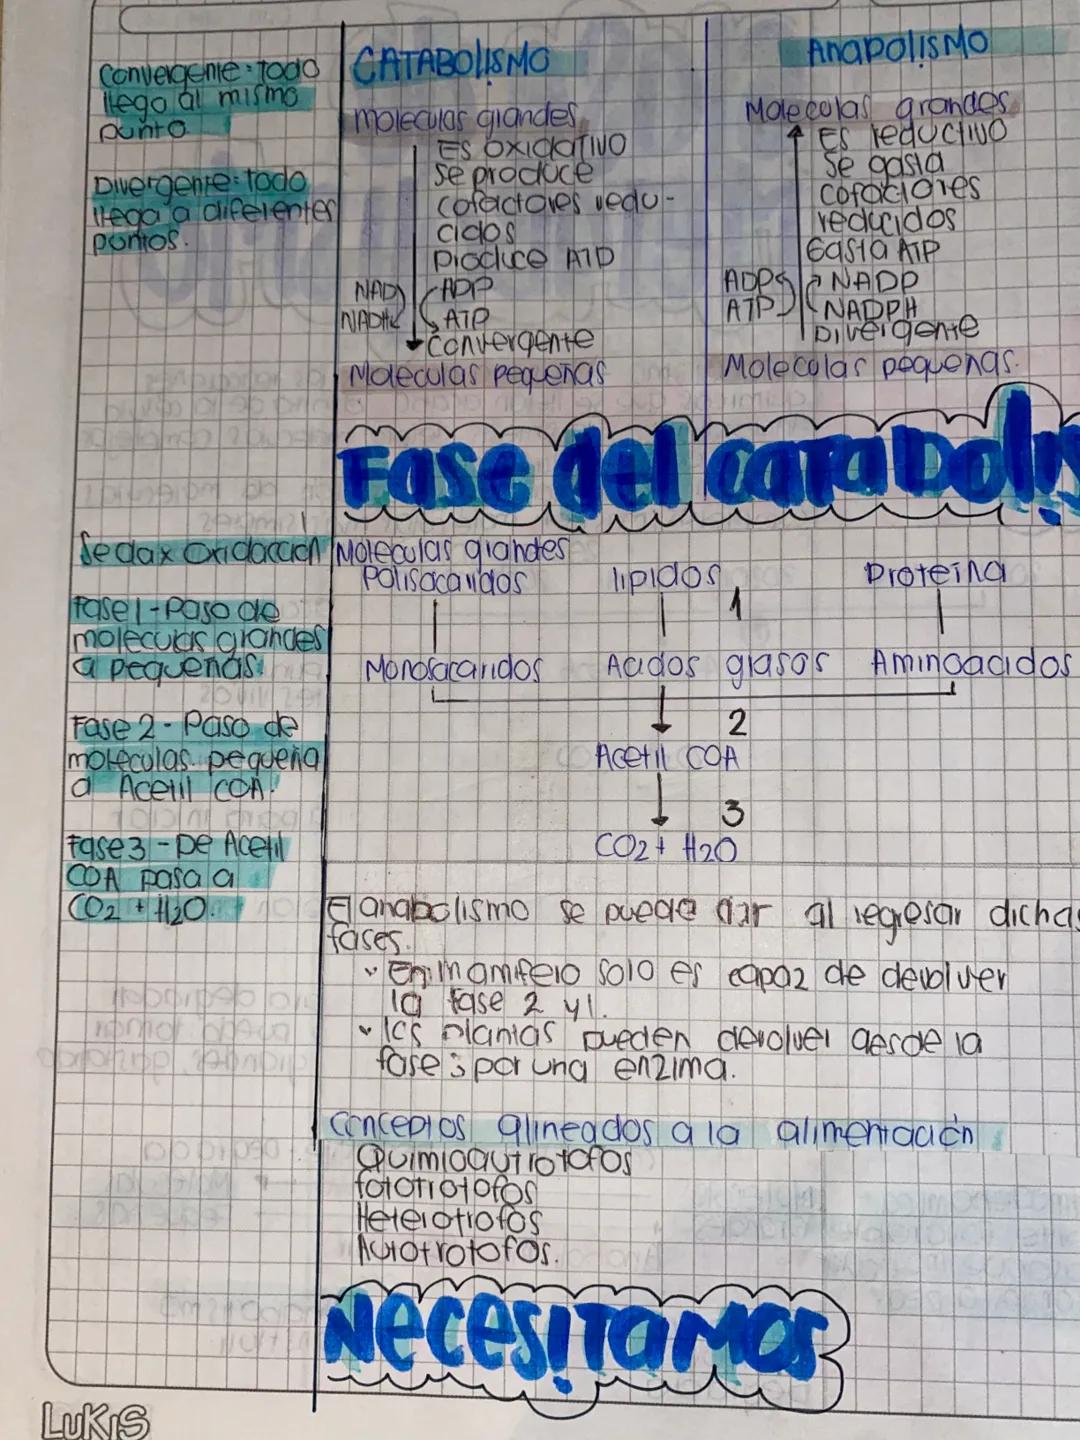 Convergente: todo
llega al mismo
punto
Divergente: todo
llega a diferentes
puntos.
CATABOLISMO
Moleculas grandes
Es oxidativo
se produce
cofactores redu-
cidos
Produce ATP
NAD
ADP
NADH
ATP
Convergente
Moleculas pequeñas
Anabolismo
Moleculas grandes
Es reductivo
Se gasta
cofactores
reducidos
Gasta ATP
ADP
NADP
ATP
NADPH
Divergente
Moleculas pequeñas.
Fase del catabolis
Se da x oxidacion
Fase 1 - Paso de
moleculas grandes
a pequeñas.
Fase 2 - Paso de
moleculas pequeña
a Acetil COA.
Fase 3 - De Acetil
COA pasa a
CO2 + H2O.
Moleculas grandes
Polisacaridos lipidos Proteina
1
Monosacaridos Acidos grasos Aminoacidos
2
Acetil COA
3
CO2 + H2O
El anabolismo se puede dar al regresar dichas
fases.
En mamifero solo es capaz de devolver
la fase 2 y 1.
las plantas pueden devolver desde la
fase 3 por una enzima.
Conceptos alineados a la alimentación
Quimioautrotofos
fototrotofos
Heterotrofos
Autotrotofos.
Necesitamos
LUKIS